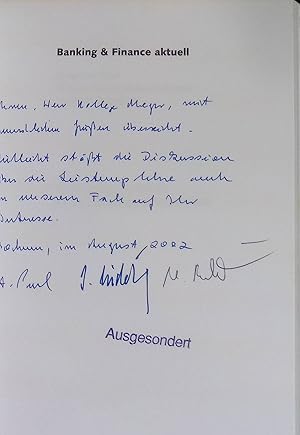 Banking & Finance aktuell
Ihnen, Herr Kollege Meyer, mit
freundlichen Grüßen überreicht.
Vielleicht stößt die Diskussion
über die Leistungslehre auch
in unserem Fach auf Ihr
Interesse.
Bochum, im August 2002
Ausgesondert